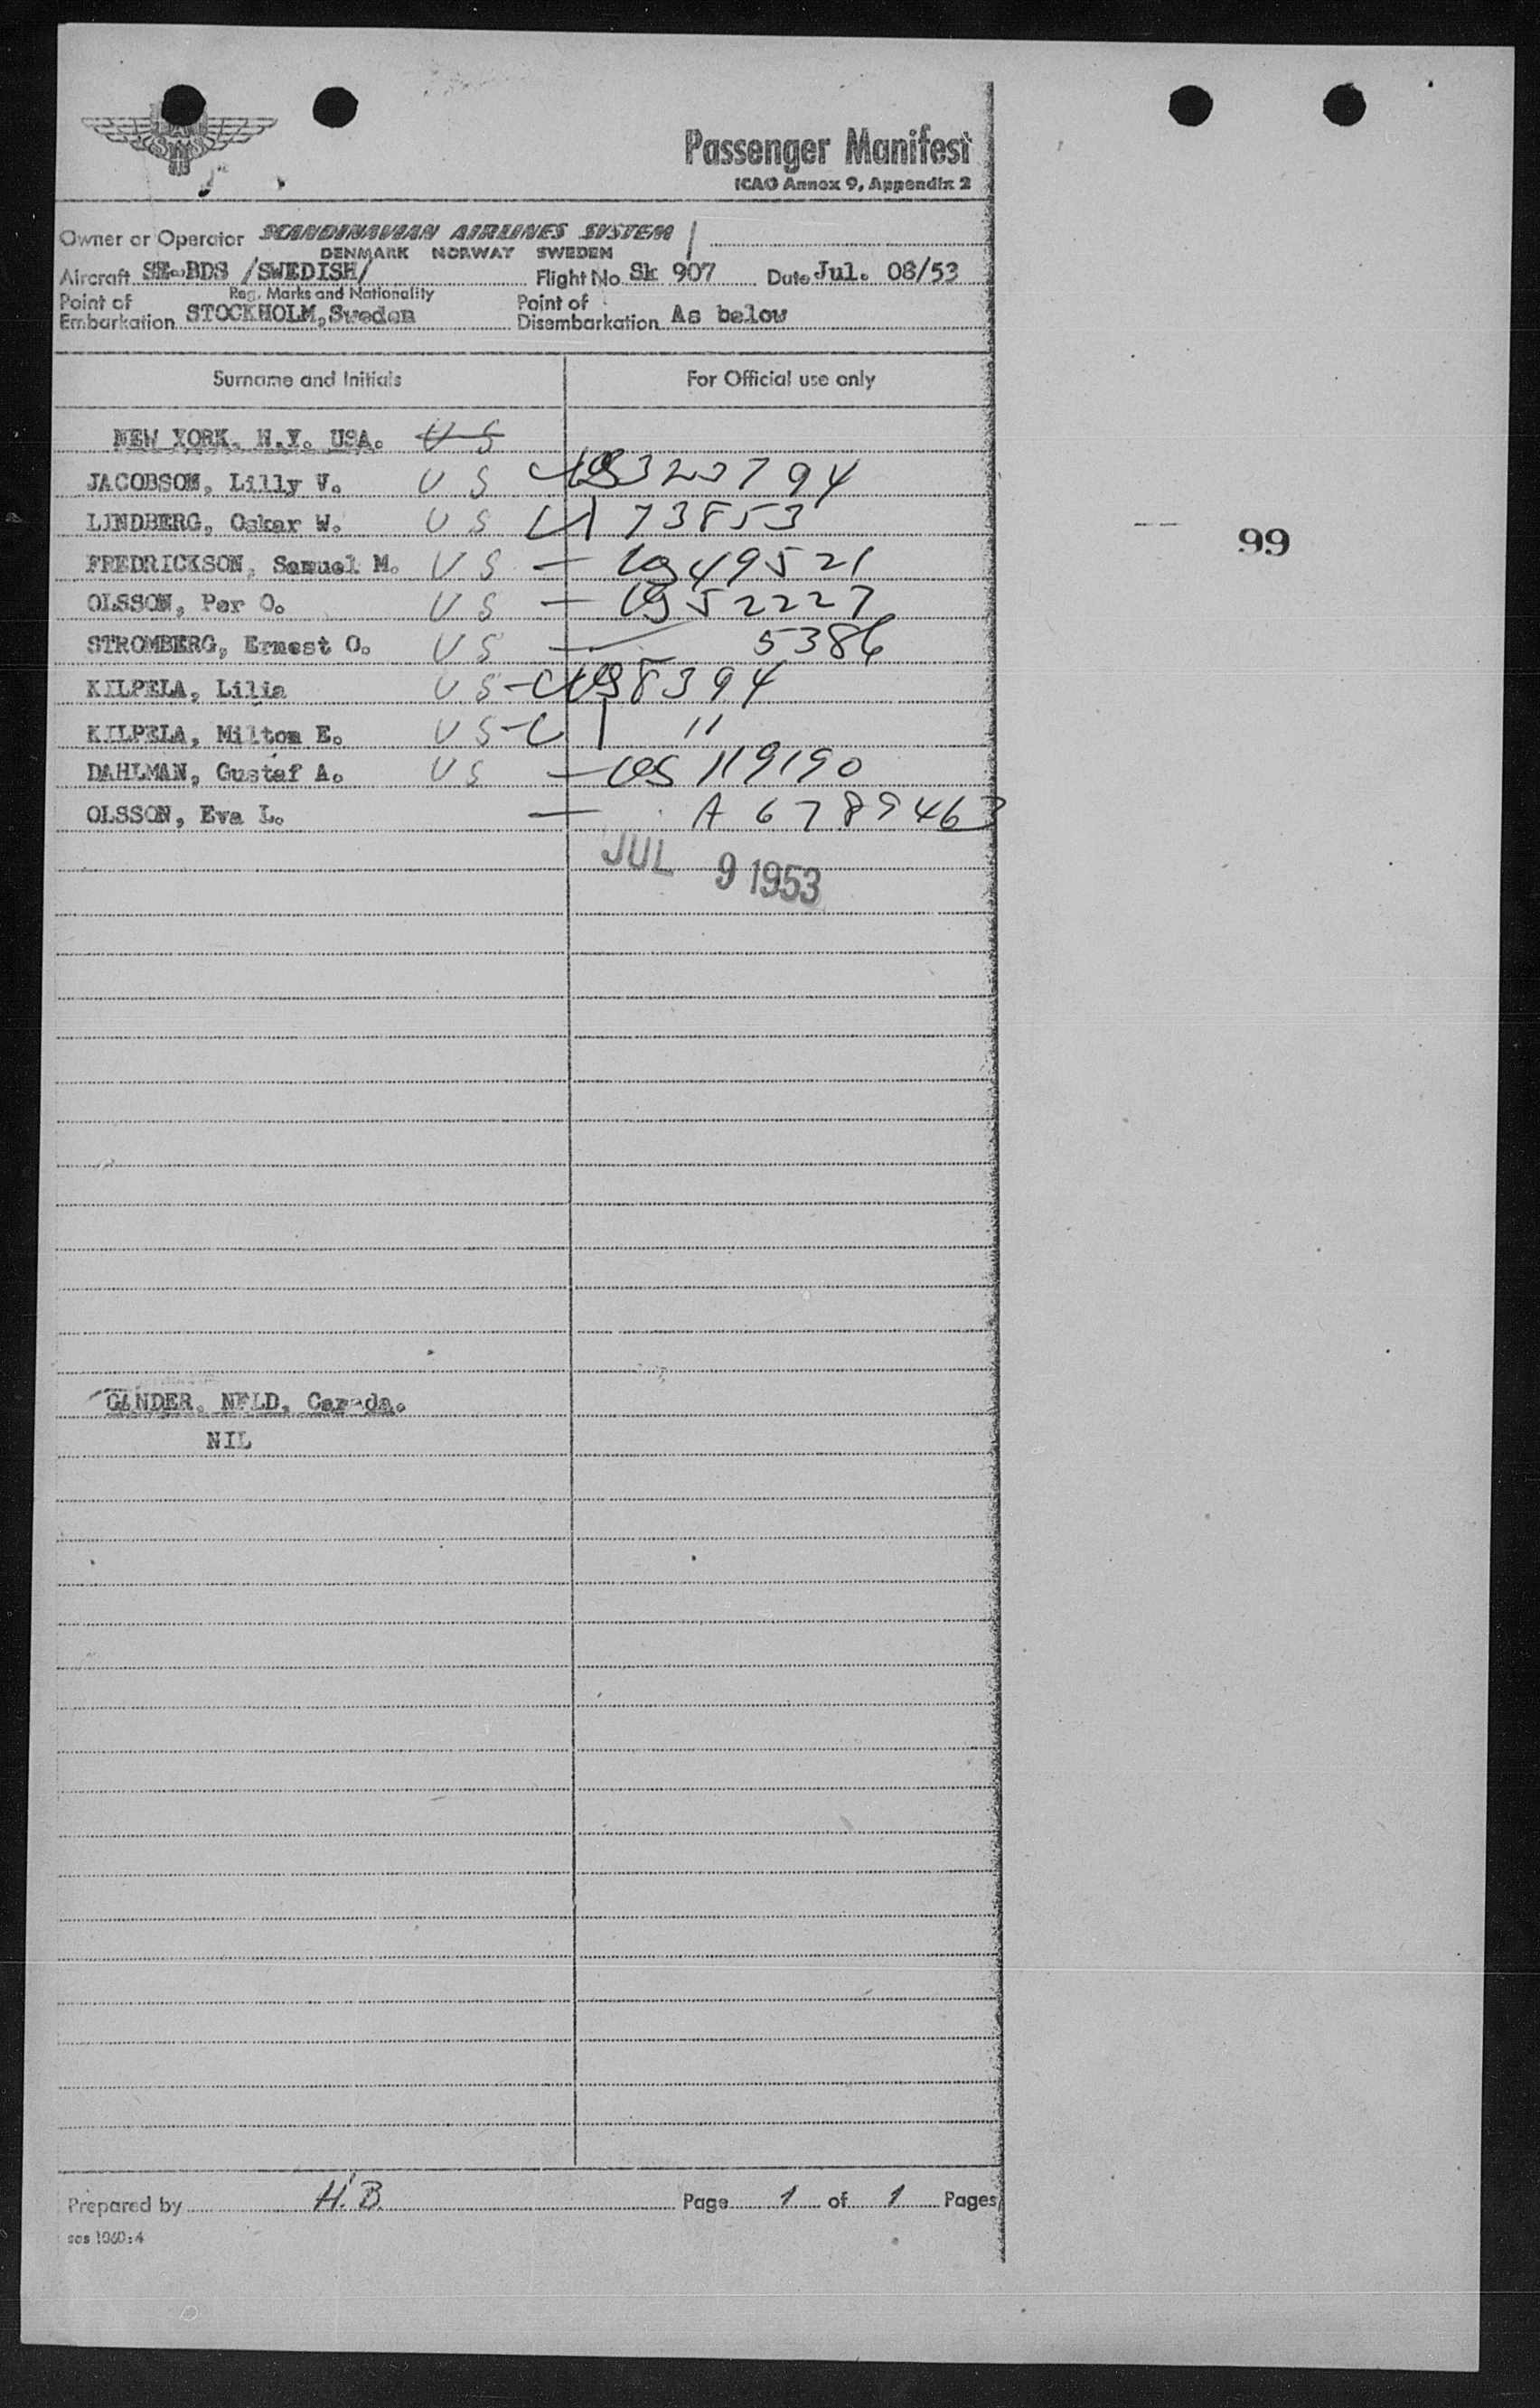 SAS
Passenger Manifest
ICAO Annex 9, Appendix 2
Owner or Operator SCANDINAVIAN AIRLINES SYSTEM
DENMARK NORWAY SWEDEN
Aircraft SE-BDS /SWEDISH/ Flight No. Sk 907 Date Jul. 08/53
Reg. Marks and Nationality
Point of Embarkation STOCKHOLM, Sweden Point of Disembarkation As below
Surname and Initials For Official use only
NEW YORK, N.Y. USA. U S
JACOBSON, Lilly V. U S 323794
LINDBERG, Oskar W. U S 73853
99
FREDRICKSON, Samuel M. U S — 49521
OLSSON, Per O. U S — 52227
STROMBERG, Ernest O. U S — 5386
KILPELA, Lilia U S 58394
KILPELA, Milton E. U S "
DAHLMAN, Gustaf A. U S — 119190
OLSSON, Eva L. — A 6789463
JUL 9 1953
GANDER, NFLD, Canada.
NIL
Prepared by H.B. Page 1 of 1 Pages
sas 1060:4